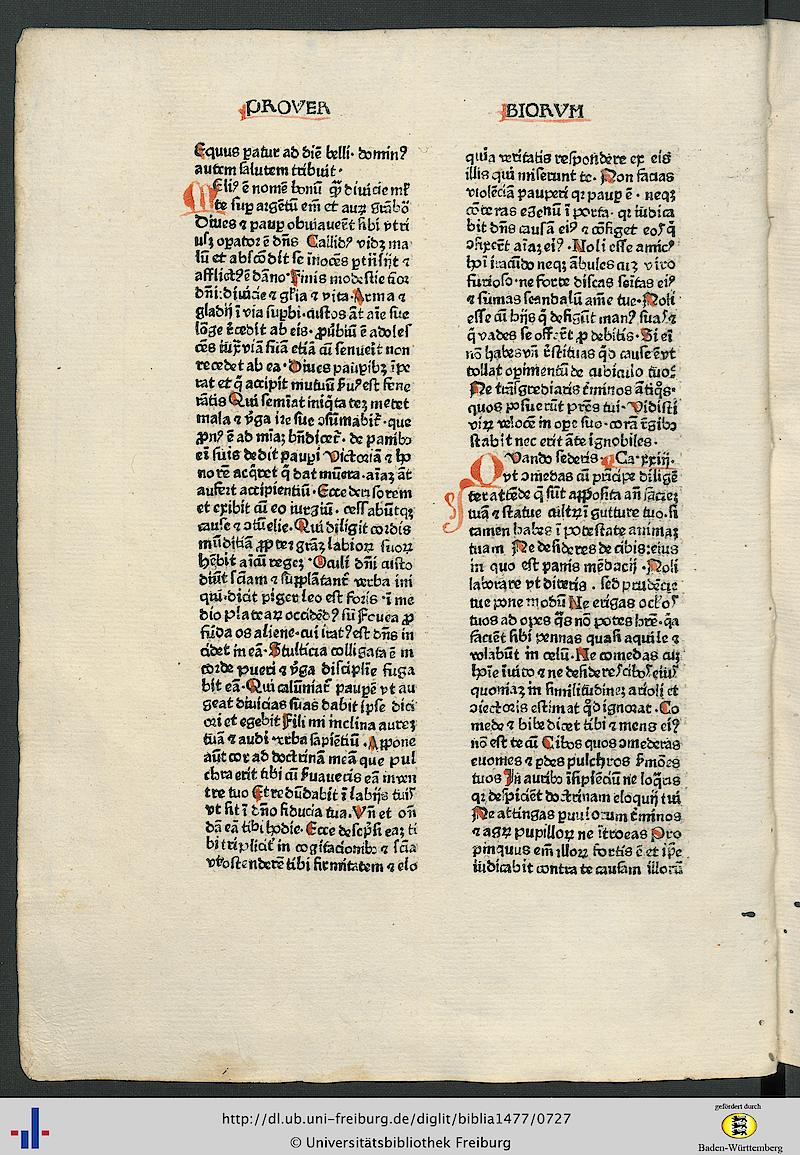 PROVER
BIORVM
Equus ꝑatur ad diē belli· domin⁹
autem salutem tribuit·
Eli⁹ ē nomē bonū
te suꝑ argētū em̄ et auꝝ
Diues et pauꝑ obuiauēt sibi vtri
usꝫ oꝑator ē dn̄s Callid⁹ vidꝫ ma
lū et abscōdit se īnocēs
afflict⁹ ē dāno· Finis modestie
dn̄i· diuicie et gl̄ia ⁊ vita· Arma ⁊
gladij ī via suꝑbi· custos āt aīe sue
lōge ab eis· ꝓūbiū ē adoles
cēs viā suā etiā cū non
recedet ab ea· Diues pauꝑibꝫ īpe
rat et q̄ accipit mutuū est fene
rātis Qui semīat iniq̄tatez metet
mala ⁊ v̄ga ire sue ꝯsumabit̄· que
ꝓn⁹ ē ad mīaꝫ bn̄dicet̄· de panibꝰ
suis dedit pauꝑi Victoriā ⁊ ho
norē acq̄ret q̄ dat mūera· aīaꝫ āt
aufert accipientiū· Ecce derisorem
et exibit cū eo iurgiū· cessabūtqꝫ
cause ⁊ ꝯtūelie· Qui diligit cordis
mūditiā ꝓpter grāꝫ labioꝝ suoꝝ
hēbit aīcū regeꝫ· Oculi dn̄i custo
diūt sciam ⁊ supplātant̄ verba ini
qui· dicit piger leo est foris· ī me
dio plateaꝝ occidēd⁹ sū Fouea ꝓ
fūda os aliene· cui irat⁹ est dn̄s in
cidet in eā· Stulticia colligata ē in
corde pueri ⁊ v̄ga discipline fuga
bit eā· Qui calūniat̄ pauꝑē vt au
geat diuicias suas dabit ipse diti
ori et egebit Fili mi inclina aurez
tuā ⁊ audi verba sapiētiū· Appone
aūt cor ad doctrinā meā que pul
chra erit tibi cū ẜuaueris eā in ven
tre tuo Et redūdabit ī labijs tuis
vt sit ī dn̄o fiducia tua· Vn̄ et on̄
dā eā tibi hodie· Ecce descp̄si eaꝫ ti
bi tripliciť in cogitacionibꝰ ⁊ scia
vt ostenderē tibi firmitatem ⁊ elo
quia veritatis respondere ex eis
illis qui miserunt te· Non facias
violēciā pauperi qꝛ pauꝑ ē· neqꝫ
cōteras egenū ī porta· qꝛ iudica
bit dn̄s causā ei⁹ ⁊ cōfiget eos q̄
aīaꝫ ei⁹· Noli esse amic⁹
hoī iracūdo neqꝫ ābules cuꝫ viro
furioso· ne forte discas seītas ei⁹
⁊ sumas scandalū aīe tue· Noli
esse cū hijs q̄ defigūt man⁹ suas ⁊
q̄ vades se offerēt ꝓ debitis· Si eī
nō habes vn̄ restituas q̄d cause ē vt
tollat opimentū de cubiculo tuo
Ne trāsgrediaris t̄minos ātiq̄s·
quos posuerūt pr̄es tui· Vidisti
viꝝ velocē in oꝑe suo· corā regibꝰ
stabit nec erit āte ignobiles·
Vando sederis· Ca· xxiij·
vt ꝯmedas cū prīcipe diligē
ter attēde q̄ sūt apposita an̄ faciez
tuā ⁊ statue cultꝝ ī gutture tuo· si
tamen habes ī potestate animaꝫ
tuam Ne desideres de cibis eius
in quo est panis mēdacij· Noli
laborare vt diteris· sed prudēcie
tue pone modū Ne erigas oclos
tuos ad opes q̄s nō potes hr̄e· q̄a
faciēt sibi pennas quasi aquile ⁊
volabūt in celū· Ne comedas cuꝫ
hoīe īuido ⁊ ne desideres cibos eius
quoniaꝫ in similitudineꝫ arioli et
ꝯiectoris estimat q̄d ignorat· Co
mede ⁊ bibe dicet tibi ⁊ mens ei⁹
nō est tecū Cibos quos ꝯmederas
euomes ⁊ ꝑdes pulchros ẜmōes
tuos In auribꝰ īsipiēciū ne loq̄ris
qꝛ despiciēt doctrinam eloquij tui
Ne attingas paruulorum t̄minos
⁊ agꝝ pupilloꝝ ne ītroeas Pro
pinquus em̄ illoꝝ fortis ē et ip̄e
iudicabit contra te causam illorū
http://dl.ub.uni-freiburg.de/diglit/biblia1477/0727
© Universitätsbibliothek Freiburg
gefördert durch
Baden-Württemberg